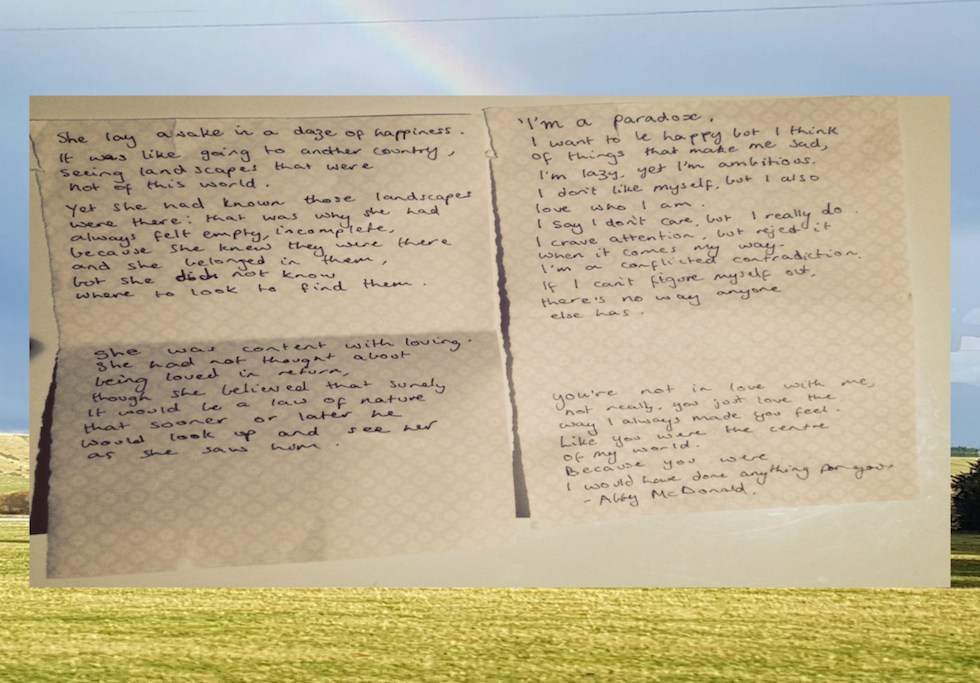 She lay awake in a daze of happiness.
It was like going to another country,
seeing landscapes that were
not of this world.
Yet she had known those landscapes
were there: that was why she had
always felt empty, incomplete,
because she knew they were there
and she belonged in them,
but she did not know
where to look to find them.
She was content with loving.
She had not thought about
being loved in return,
though she believed that surely
it would be a law of nature
that sooner or later he
would look up and see her
as she saw him.
'I'm a paradox.
I want to be happy but I think
of things that make me sad,
I'm lazy, yet I'm ambitious.
I don't like myself, but I also
love who I am.
I say I don't care, but I really do.
I crave attention, but reject it
when it comes my way.
I'm a conflicted contradiction.
If I can't figure myself out,
there's no way anyone
else has.
You're not in love with me,
not really, you just love the
way I always made you feel.
Like you were the centre
of my world.
Because you were
I would have done anything for you.
- Abby McDonald.